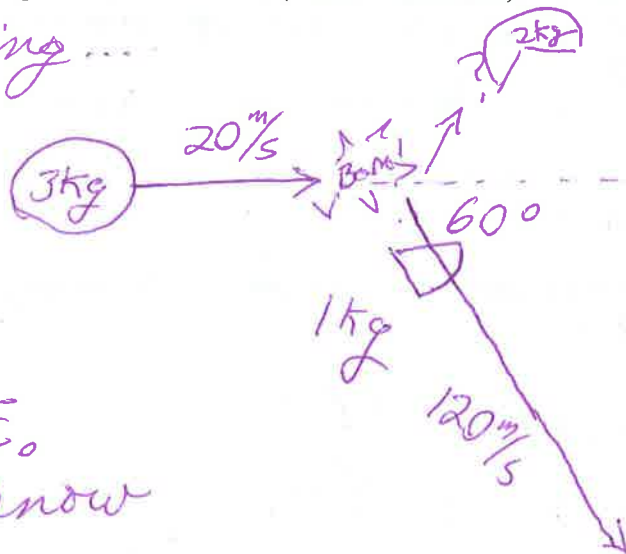 ing ...
2kg
?
20 m/s
3kg
Bang!
60°
1kg
120 m/s
now